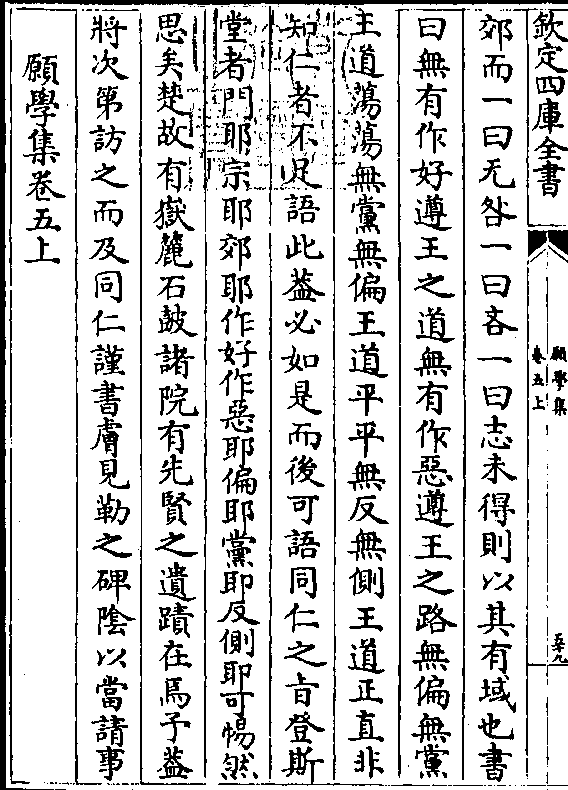 欽定四庫全書
願學集
卷五上
五十九
郊而一曰无咎一曰吝一曰志未得則以其有域也書
曰無有作好遵王之道無有作惡遵王之路無偏無黨
王道蕩蕩無黨無偏王道平平無反無側王道正直非
知仁者不足語此葢必如是而後可語同仁之㫖登斯
堂者門耶宗耶郊耶作好作惡耶偏耶黨耶反側耶可惕然
思矣楚故有嶽麓石皷諸院有先賢之遺蹟在焉予葢
將次第訪之而及同仁謹書膚見勒之碑隂以當請事
願學集卷五上